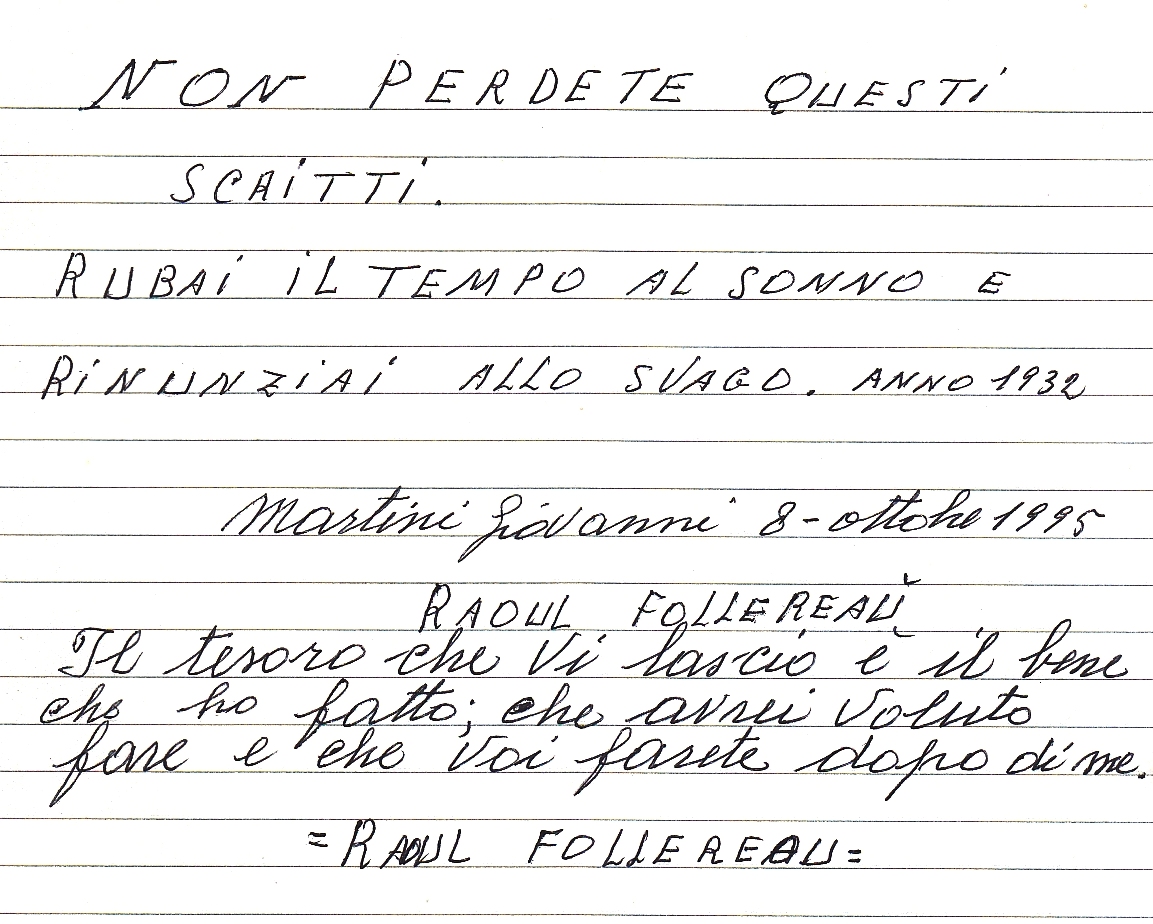 NON PERDETE QUESTI
SCRITTI.
RUBAI IL TEMPO AL SONNO E
RINUNZIAI ALLO SVAGO. ANNO 1932
Martini Giovanni 8-ottobre 1995
RAOUL FOLLEREAU
Il tesoro che Vi lascio è il bene
che ho fatto; che avrei Voluto
fare e che Voi farete dopo di me.
=RAOUL FOLLEREAU=